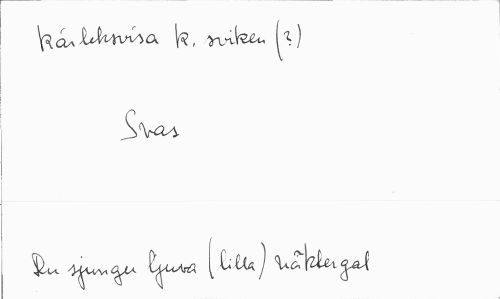 Kärleksvisa k. sviken (?)
Svas
Du sjunger ljuva (lilla) näktergal